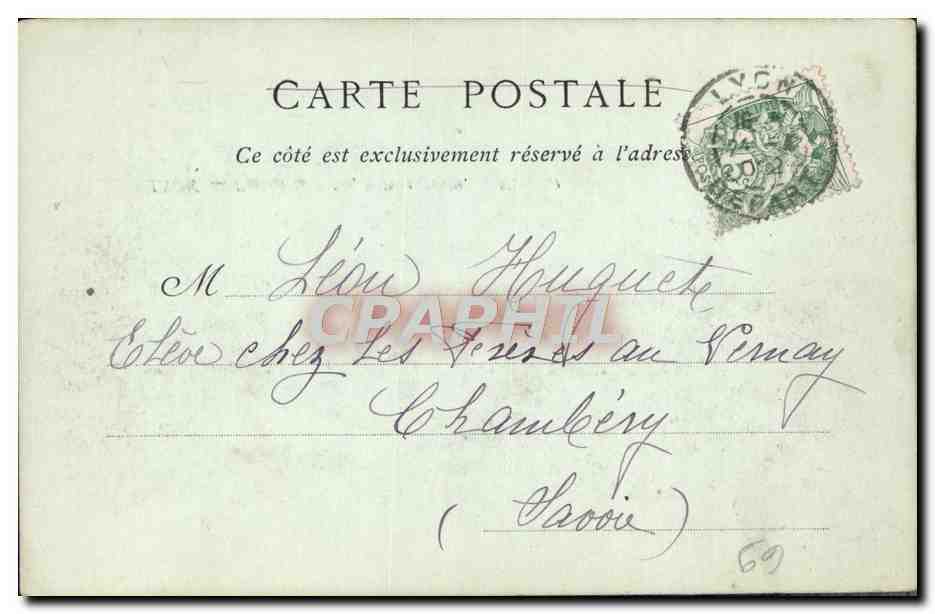 CARTE POSTALE
LYON
Ce côté est exclusivement réservé à l'adresse
M Léon Huguet
CPAPHIL
Elève chez Les Frères au Vernay
Chambéry
(Savoie)
69